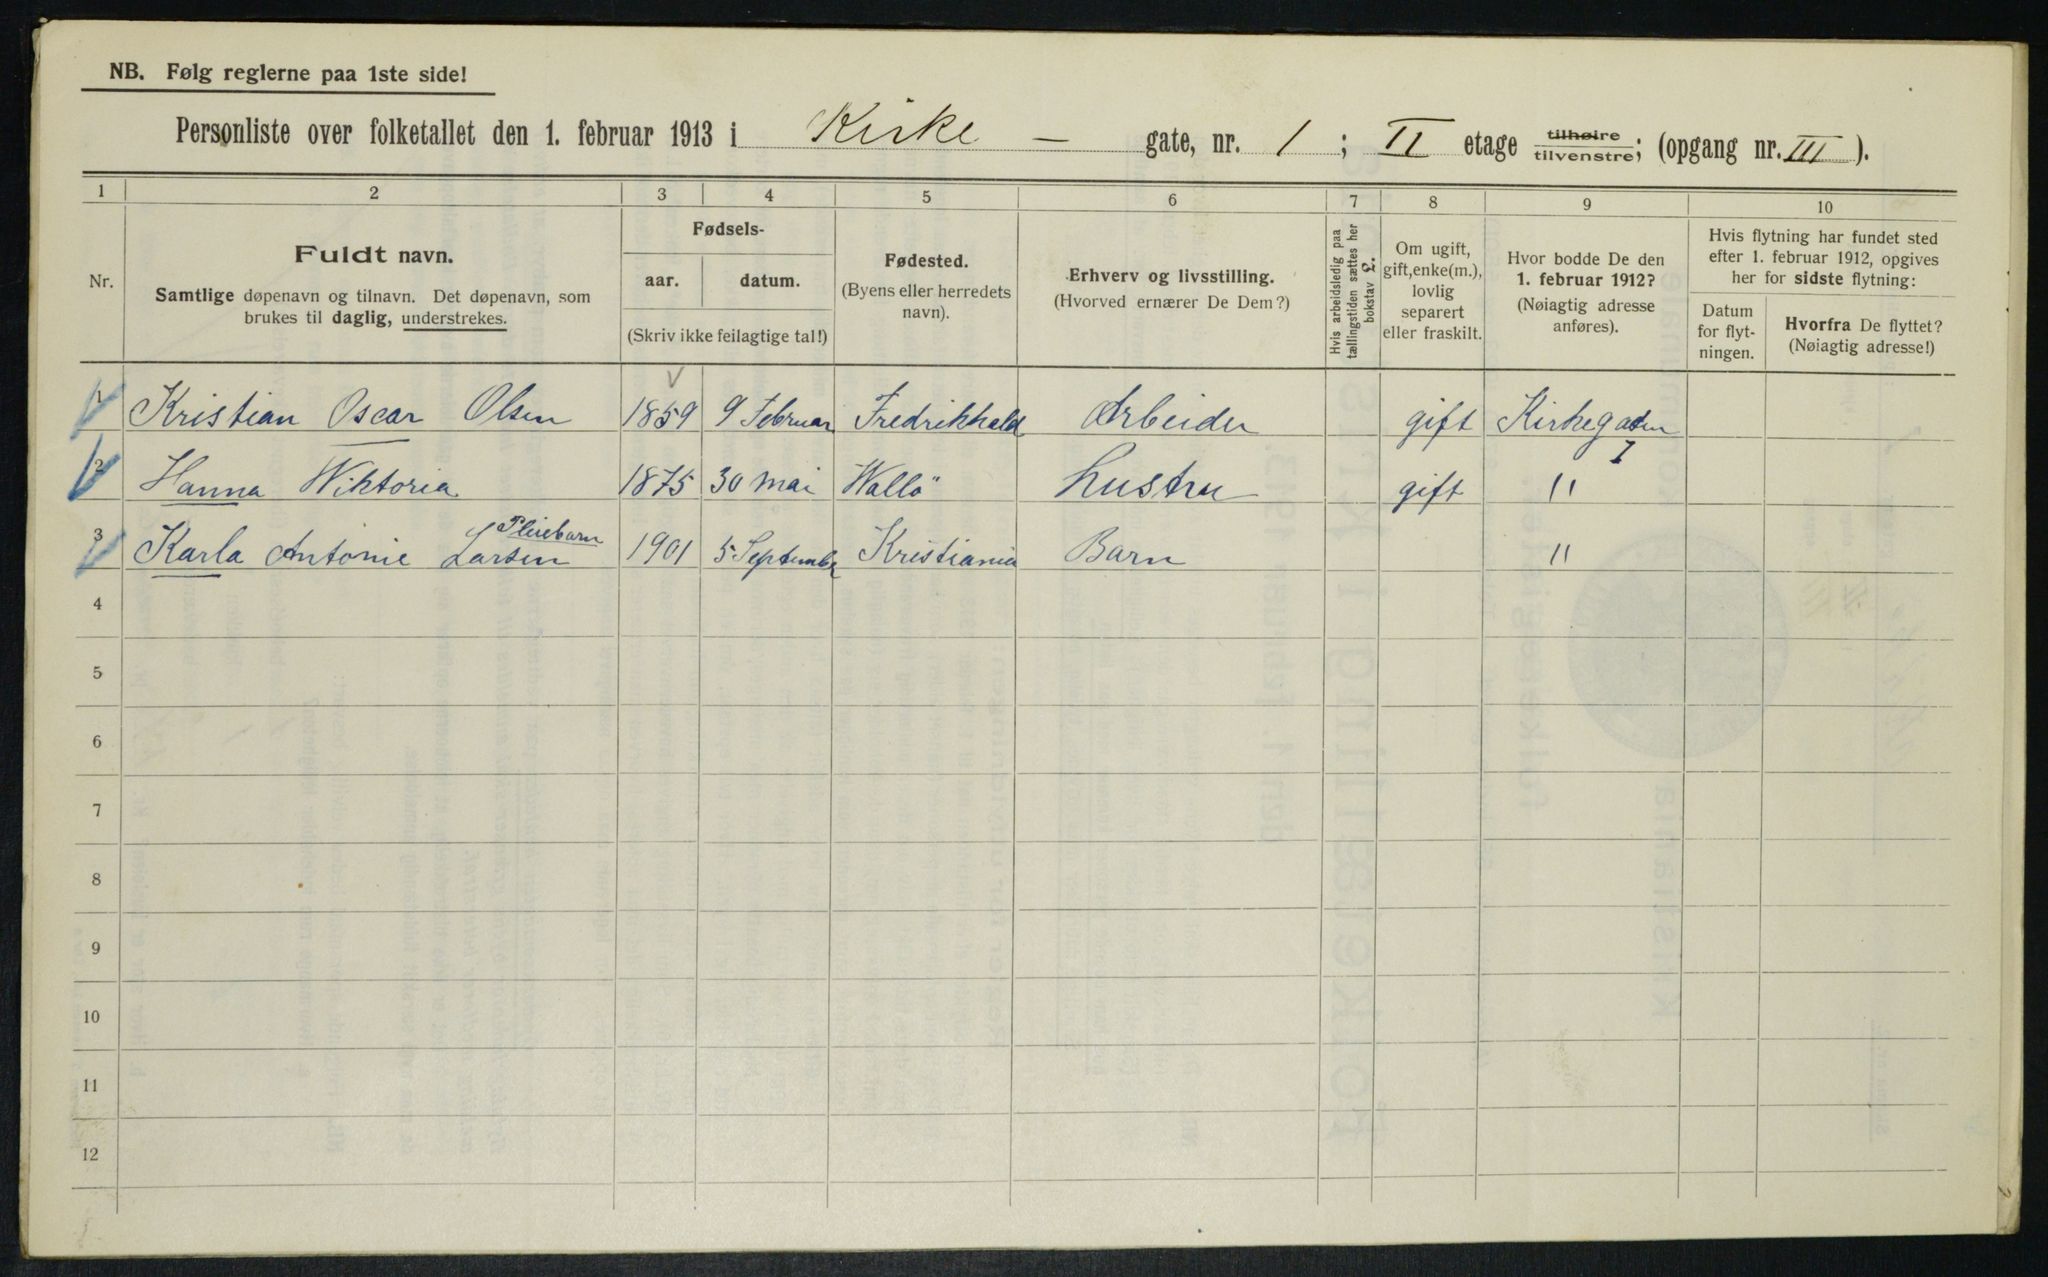 NB. Følg reglerne paa 1ste side!
Personliste over folketallet den 1. februar 1913 i Kirke – gate, nr. 1; II etage tilhøire/tilvenstre; (opgang nr. III).
1 2 3 4 5 6 7 8 9 10
Nr.
Fuldt navn.
Samtlige døpenavn og tilnavn. Det døpenavn, som
brukes til daglig, understrekes.
Fødsels-
aar. datum.
(Skriv ikke feilagtige tal!)
Fødested.
(Byens eller herredets
navn).
Erhverv og livsstilling.
(Hvorved ernærer De Dem?)
Hvis arbeidsledig paa
tællingstiden sættes her
bokstav £.
Om ugift,
gift, enke(m.),
lovlig
separert
eller fraskilt.
Hvor bodde De den
1. februar 1912?
(Nøiagtig adresse
anføres).
Hvis flytning har fundet sted
efter 1. februar 1912, opgives
her for sidste flytning:
Datum
for flyt-
ningen.
Hvorfra De flyttet?
(Nøiagtig adresse!)
1 Kristian Oscar Olsen 1859 9 Februar Fredrikhald Arbeider gift Kirkegaten 1
2 Hanna Wiktoria 1875 30 mai Wallö Hustru gift "
Pleiebarn
3 Karla Antonie Larsen 1901 5 September Kristiania Barn "
4
5
6
7
8
9
10
11
12